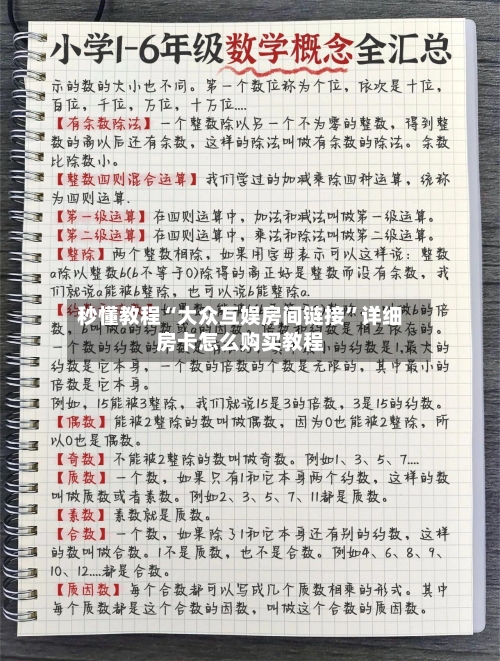 小学1-6年级数学概念全汇总
示的数的大小也不同。第一个数位称为个位,依次是十位,
百位,千位,万位,十万位....
【有余数除法】一个整数除以另一个不为零的整数,得到整
数的商以后还有余数,这样的除法叫做有余数的除法。余数
比除数小。
【整数四则混合运算】我们学过的加减乘除四种运算,统称
为四则运算.
【第一级运算】在四则运算中,加法和减法叫做第一级运算。
【第二级运算】在四则运算中,乘法和除法叫做第二级运算。
【整除】两个整数相除,如果用字母表示可以这样说:整数
a除以整数b(b不等于0)除得的商正好是整数而没有余数,我
们就说a能被b整除,也可以说b能整除a.
秒懂教程“大众互娱房间链接”详细
房卡怎么购买教程
个数的约数的
一个数的倍数的个数是无限的,其中最小的
倍数是它本身。
例如,15能被3整除,我们就说15是3的倍数,3是15的约数。
【偶数】能被2整除的数叫做偶数,因为0也能被2整除,所
以0也是偶数。
【奇数】不能被2整除的数叫做奇数。例如1、3、5、7....
【质数】一个数,如果只有1和它本身两个约数,这样的数
叫做质数或者素数。例如2、3、5、7、11都是质数。
【素数】素数就是质数。
【合数】一个数,如果除了1和它本身还有别的约数,这样
的数叫做合数。1不是质数,也不是合数。例如4、6、8、9、
10、12....都是合数。
【质因数】每个合数都可以写成几个质数相乘的形式。其中
每个质数都是这个合数的因数,叫做这个合数的质因数。